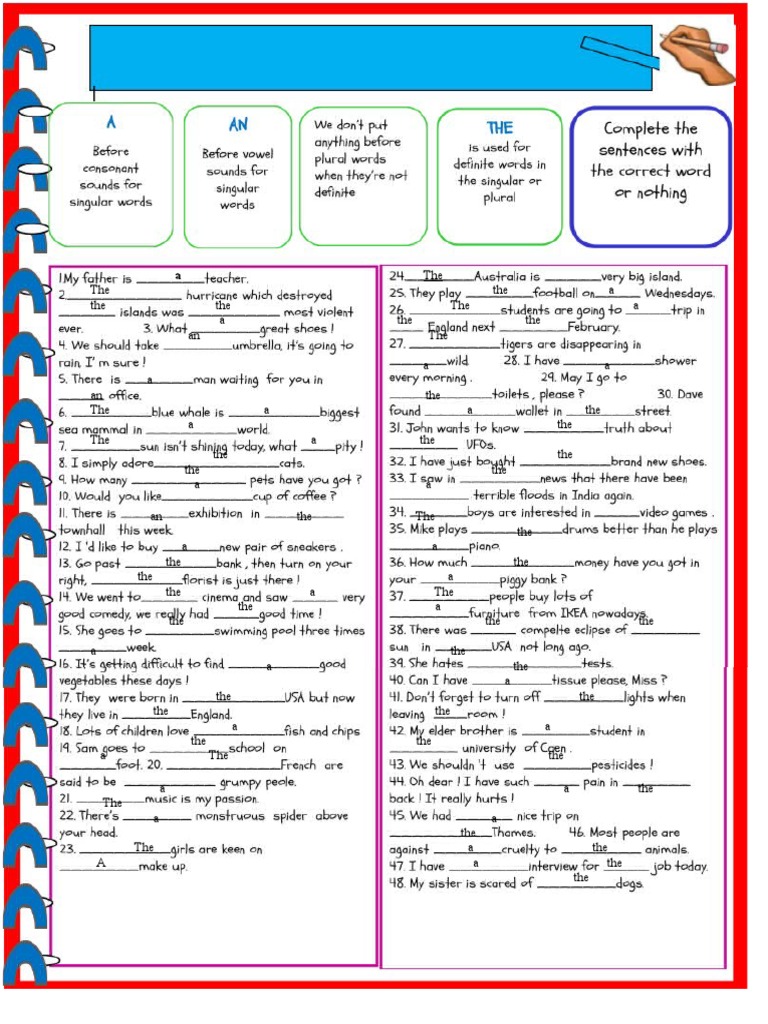 A
Before
consonant
sounds for
singular words
AN
Before vowel
sounds for
singular
words
We don't put
anything before
plural words
when they're not
definite
THE
is used for
definite words in
the singular or
plural
Complete the
sentences with
the correct word
or nothing
1.My father is a teacher.
2. The hurricane which destroyed
the islands was the most violent
ever. 3. What a great shoes !
4. We should take an umbrella, it's going to
rain I' m sure !
5. There is a man waiting for you in
an office.
6. The blue whale is a biggest
sea mammal in a world.
7. The sun isn't shining today, what a pity !
8. I simply adore the cats.
9. How many the pets have you got ?
10. Would you like a cup of coffee ?
11. There is an exhibition in the
townhall this week.
12. I 'd like to buy a new pair of sneakers .
13. Go past the bank , then turn on your
right, the florist is just there !
14. We went to the cinema and saw a very
good comedy, we really had the good time !
15. She goes to the swimming pool three times
a week.
16. It's getting difficult to find a good
vegetables these days !
17. They were born in the USA but now
they live in the England.
18. Lots of children love a fish and chips
19. Sam goes to the school on
a foot. 20. The French are
said to be a grumpy peole.
21. The music is my passion.
22. There's a monstruous spider above
your head.
23. The girls are keen on
A make up.
24. The Australia is very big island.
25. They play the football on a Wednesdays.
26. The students are going to a trip in
the England next the February.
27. The tigers are disappearing in
a wild. 28. I have a shower
every morning . 29. May I go to
the toilets , please ? 30. Dave
found a wallet in the street.
31. John wants to know the truth about
the UFOs.
32. I have just bought the brand new shoes.
33. I saw in the news that there have been
a terrible floods in India again.
34. The boys are interested in a video games .
35. Mike plays the drums better than he plays
a piano.
36. How much the money have you got in
your a piggy bank ?
37. The people buy lots of
a furniture from IKEA nowadays.
38. There was the compelte eclipse of the
sun in the USA not long ago.
39. She hates the tests.
40. Can I have a tissue please, Miss ?
41. Don't forget to turn off the lights when
leaving the room !
42. My elder brother is a student in
the university of Caen .
43. We shouldn 't use the pesticides !
44. Oh dear ! I have such a pain in the
back ! It really hurts !
45. We had a nice trip on
the Thames. 46. Most people are
against a cruelty to the animals.
47. I have a interview for the job today.
48. My sister is scared of the dogs.